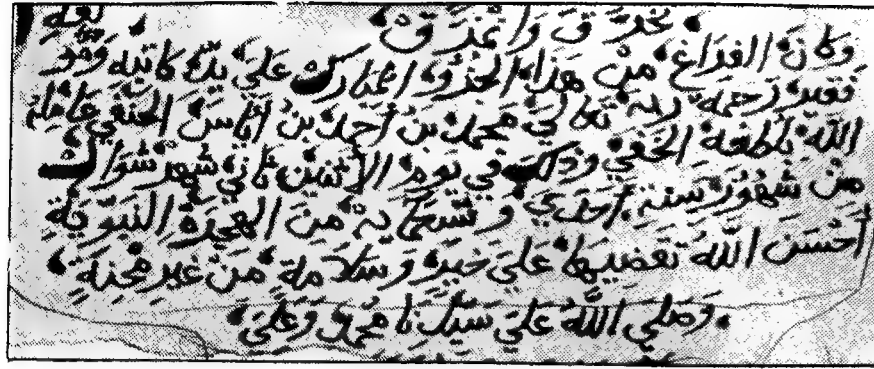 تخرق وانمزق
وكان الفراغ من هذا الجزو المبارك علي يد كاتبه وهو
فقير رحمة ربه تعالي محمد بن أحمد بن أناس الحنفي عامله
الله بلطفه الخفي وذلك في يوم الأثنين ثاني شهر شوال
من شهور سنة أحدي وتسعماية من الهجرة النبوية
أحسن الله تقضيها علي خير وسلامة من غير محنة
وصلي الله علي سيدنا محمد وعلي